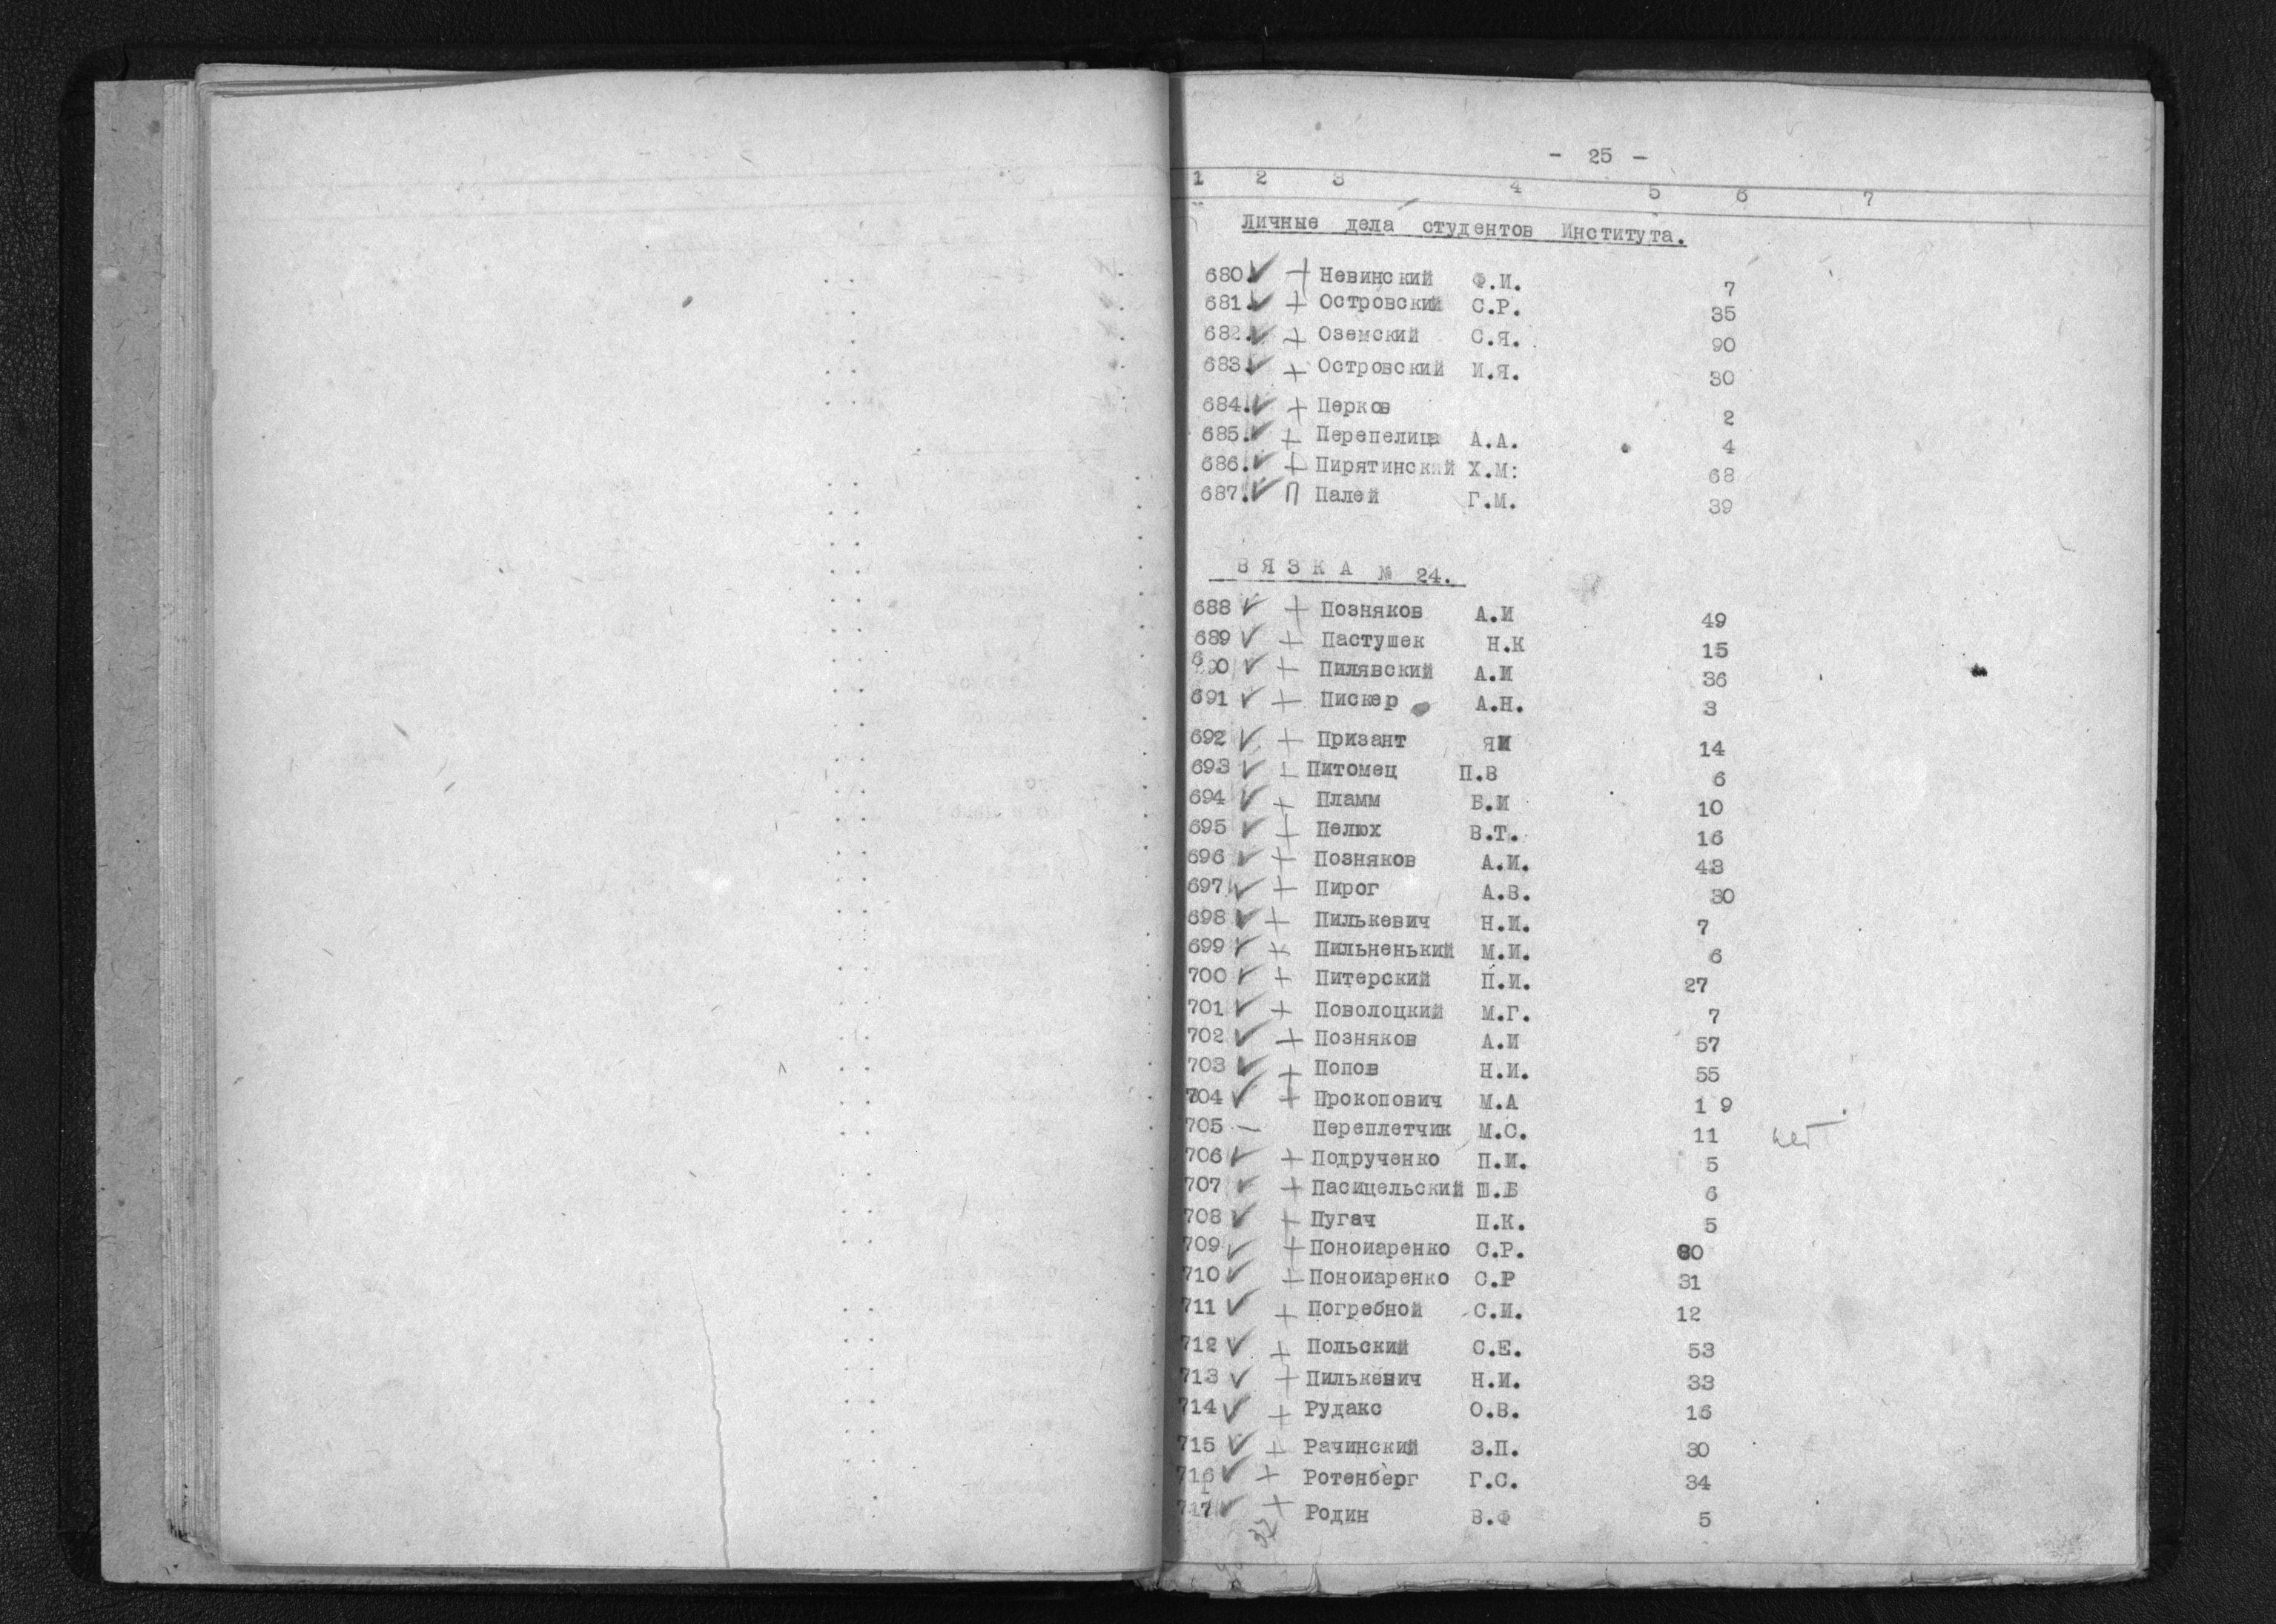 - 25 -
1 2 3 4 5 6 7
Личные дела студентов Института.
680. ✓ + Невинский Ф.И. 7
681. ✓ + Островский С.Р. 35
682. ✓ + Оземский С.Я. 90
683. ✓ + Островский И.Я. 30
684. ✓ + Перков 2
685. ✓ + Перепелица А.А. 4
686. ✓ + Пирятинский Х.М: 68
687. ✓ П Палей Г.М. 39
В Я З К А № 24.
688 ✓ + Позняков А.И 49
689 ✓ + Пастушек Н.К 15
690 ✓ + Пилявский А.И 36
691 ✓ + Пискер А.Н. 3
692 ✓ + Призант ЯИ 14
693 ✓ + Питомец П.В 6
694 ✓ + Пламм Б.И 10
695 ✓ + Пелюх В.Т. 16
696 ✓ + Позняков А.И. 43
697 ✓ + Пирог А.В. 30
698 ✓ + Пилькевич Н.И. 7
699 ✓ + Пильненький М.И. 6
700 ✓ + Питерский П.И. 27
701 ✓ + Поволоцкий М.Г. 7
702 ✓ + Позняков А.И 57
703 ✓ + Попов Н.И. 55
704 ✓ + Прокопович М.А 1 9
705 — Переплетчик М.С. 11 нет
706 ✓ + Подрученко П.И. 5
707 ✓ + Пасицельский Ш.Б 6
708 ✓ + Пугач П.К. 5
709 ✓ + Пономаренко С.Р. 30
710 ✓ + Пономаренко С.Р 31
711 ✓ + Погребной С.И. 12
712 ✓ + Польский С.Е. 53
713 ✓ + Пилькевич Н.И. 33
714 ✓ + Рудакс О.В. 16
715 ✓ + Рачинский З.П. 30
716 ✓ + Ротенберг Г.С. 34
717 ✓ + Родин В.Ф 5